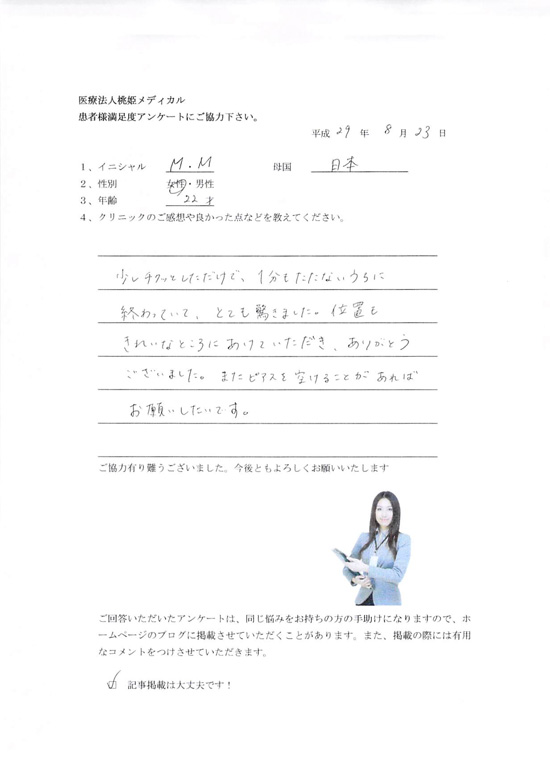 医療法人桃姫メディカル
患者様満足度アンケートにご協力下さい。
平成 29 年 8 月 23 日
1、イニシャル M.M 母国 日本
2、性別 女性・男性
3、年齢 22才
4、クリニックのご感想や良かった点などを教えてください。
少しチクッとしただけで、1分もたたないうちに
終わっていて、とても驚きました。位置も
きれいなところにあけていただき、ありがとう
ございました。またピアスを空けることがあれば
お願いしたいです。
ご協力有り難うございました。今後ともよろしくお願いいたします
ご回答いただいたアンケートは、同じ悩みをお持ちの方の手助けになりますので、ホ
ームページのブログに掲載させていただくことがあります。また、掲載の際には有用
なコメントをつけさせていただきます。
☑ 記事掲載は大丈夫です！